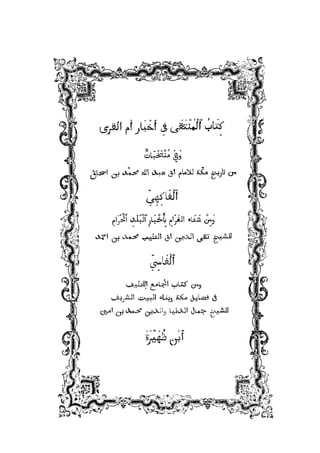 كِتَابُ ٱلْمُنْتَقَى فِي أَخْبَارِ أُمِّ القُرَى
وَفِي مُنْتَخَبَاتٌ
من تاريخ مكّة للامام ابى عبد الله محمّد بن اسحاق
ٱلْفَاكِهِيِّ
وَمِنْ شِفَاء الغَرَامِ بِأَخْبَارِ ٱلْبَلَدِ ٱلْحَرَامِ
للشيخ تقى الدين ابى الطيب محمد بن احمد
ٱلْفَاسِيِّ
ومن كتاب الجامع اللطيف
فى فضايل مكة وبناء البيت الشريف
للشيخ جمال الدنيا والدين محمد بن امين
ٱبْنِ ظُهَيْرَةَ